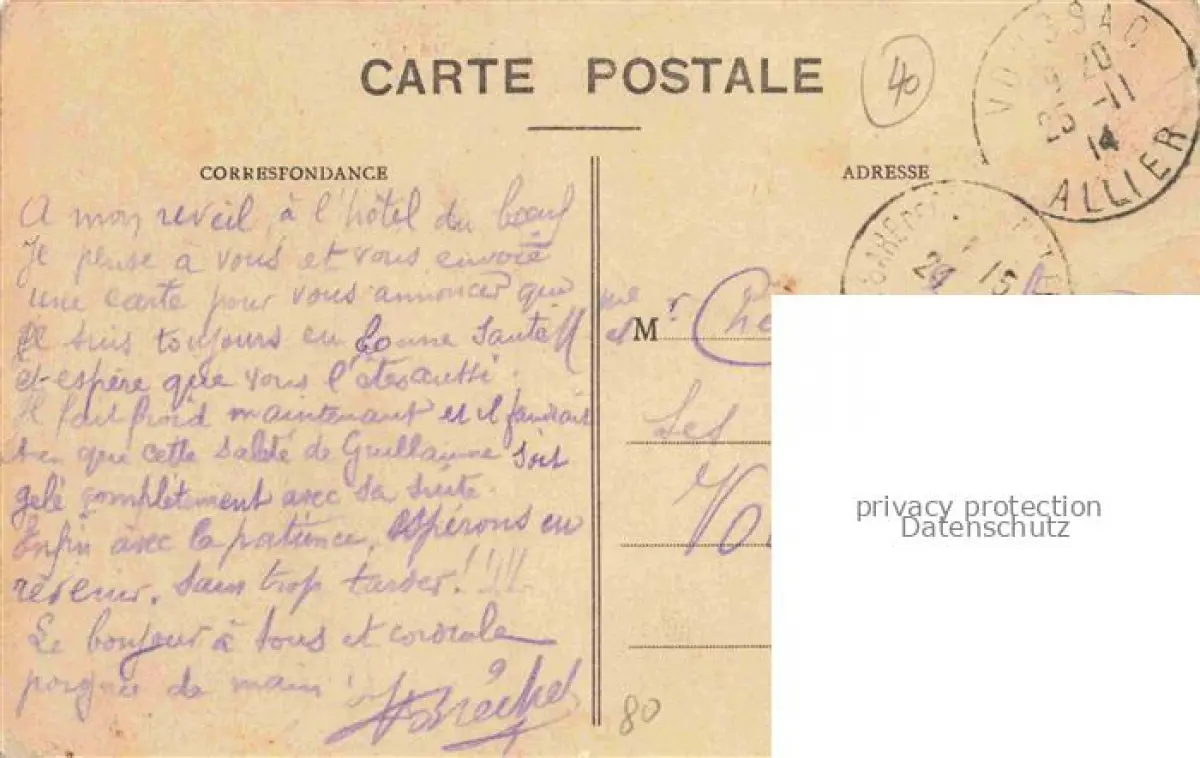 CARTE POSTALE
40
VOUSSAC
9 20
25 -11
14
ALLIER
CORRESPONDANCE
ADRESSE
A mon reveil, à l'hôtel du bœuf
Je pense à vous et vous envoie
une carte pour vous annoncer que
Je suis toujours en bonne santé
et espère que vous l'êtes aussi.
Il fait froid maintenant et il faudrait
que cette saleté de Guillaume soit
gelé complètement avec sa suite.
Enfin avec la patience espérons en
revenir. sans trop tarder! !!!
Le bonjour à tous et cordiale
poignée de main!
29
15
M
et
Les
80
privacy protection
Datenschutz